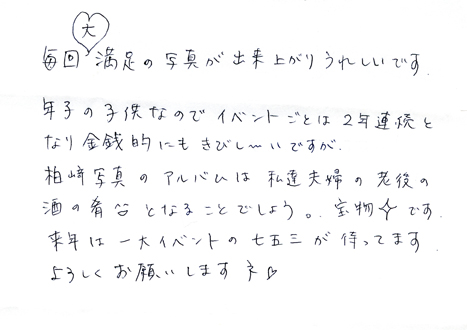 毎回 大 満足の写真が出来上がりうれしいです。
年子の子供なのでイベントごとは2年連続と
なり金銭的にもきびし〜いですが、
柏崎写真のアルバムは私達夫婦の老後の
酒の肴となることでしょう。宝物✧です
来年は一大イベントの七五三が待ってます
よろしくお願いしますネ♡